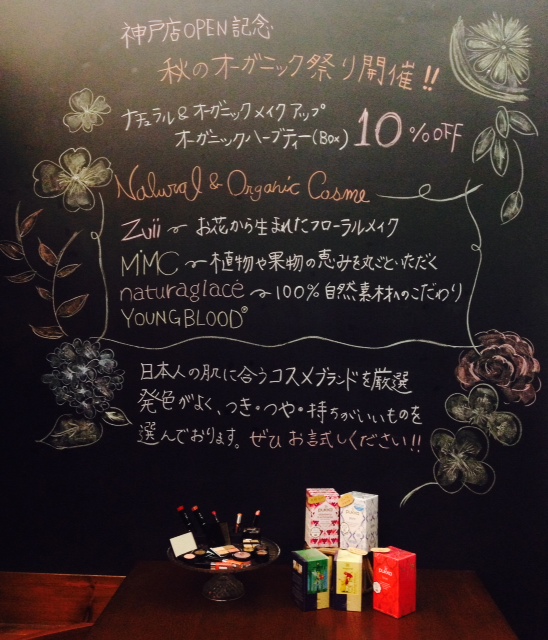 神戸店OPEN記念
秋のオーガニック祭り開催!!
ナチュラル&オーガニックメイクアップ
オーガニックハーブティー(Box) 10%OFF
Natural & Organic Cosme
Zuii～お花から生まれたフローラルメイク
MMC～植物や果物の恵みを丸ごといただく
naturaglacé～100%自然素材へのこだわり
YOUNGBLOOD®
日本人の肌に合うコスメブランドを厳選
発色がよく、つき・つや・持ちがいいものを
選んでおります。ぜひお試しください!!
pukka
pukka
pukka